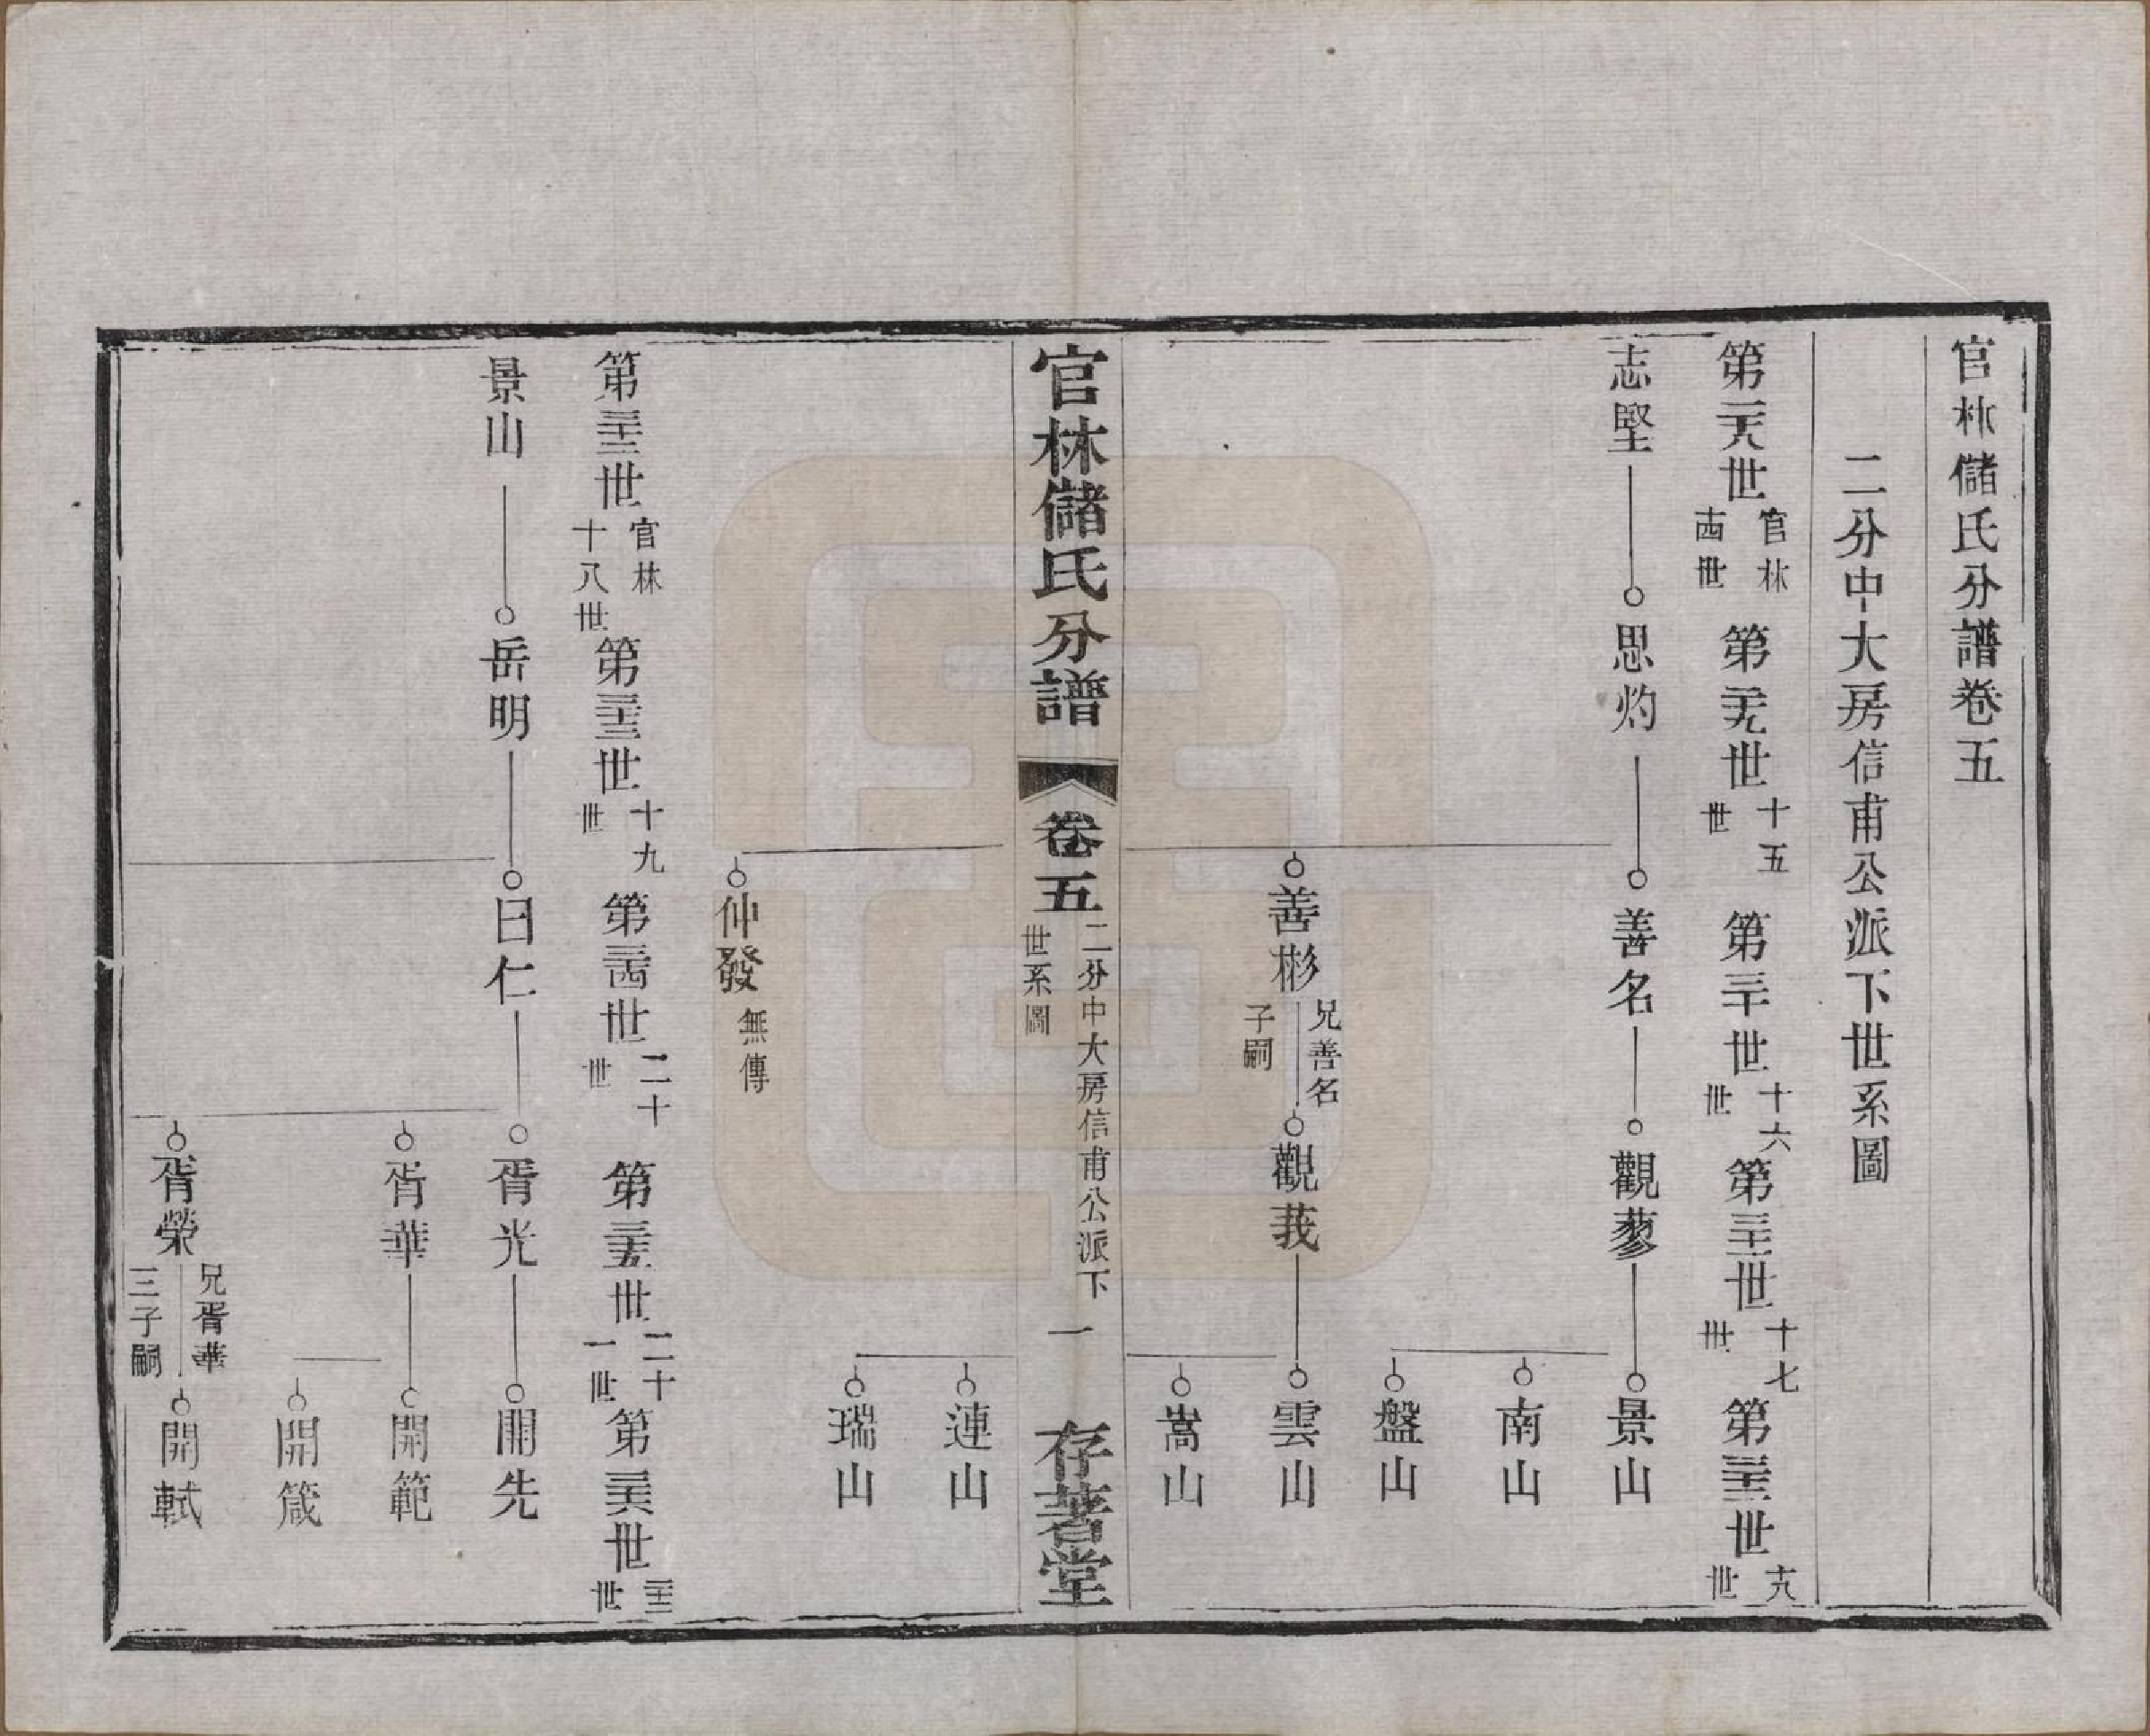 官林儲氏分譜卷五
二分中大房信甫公派下世系圖
第二十八世 官林十四世 第二十九世 十五世 第三十世 十六世 第三十一世 十七世 第三十二世 十八世
志堅 思灼 善名 觀蓼 景山
南山
盤山
善彬 兄善名子嗣 觀莪 雲山
嵩山
官林儲氏分譜 卷五 二分中大房信甫公派下世系圖 一 存著堂
連山
瑞山
仲發 無傳
第三十二世 官林十八世 第三十三世 十九世 第三十四世 二十世 第三十五世 二十一世 第三十六世 二十二世
景山 岳明 日仁 胥光 開先
胥華 開範
開箴
胥榮 兄胥華三子嗣 開軾